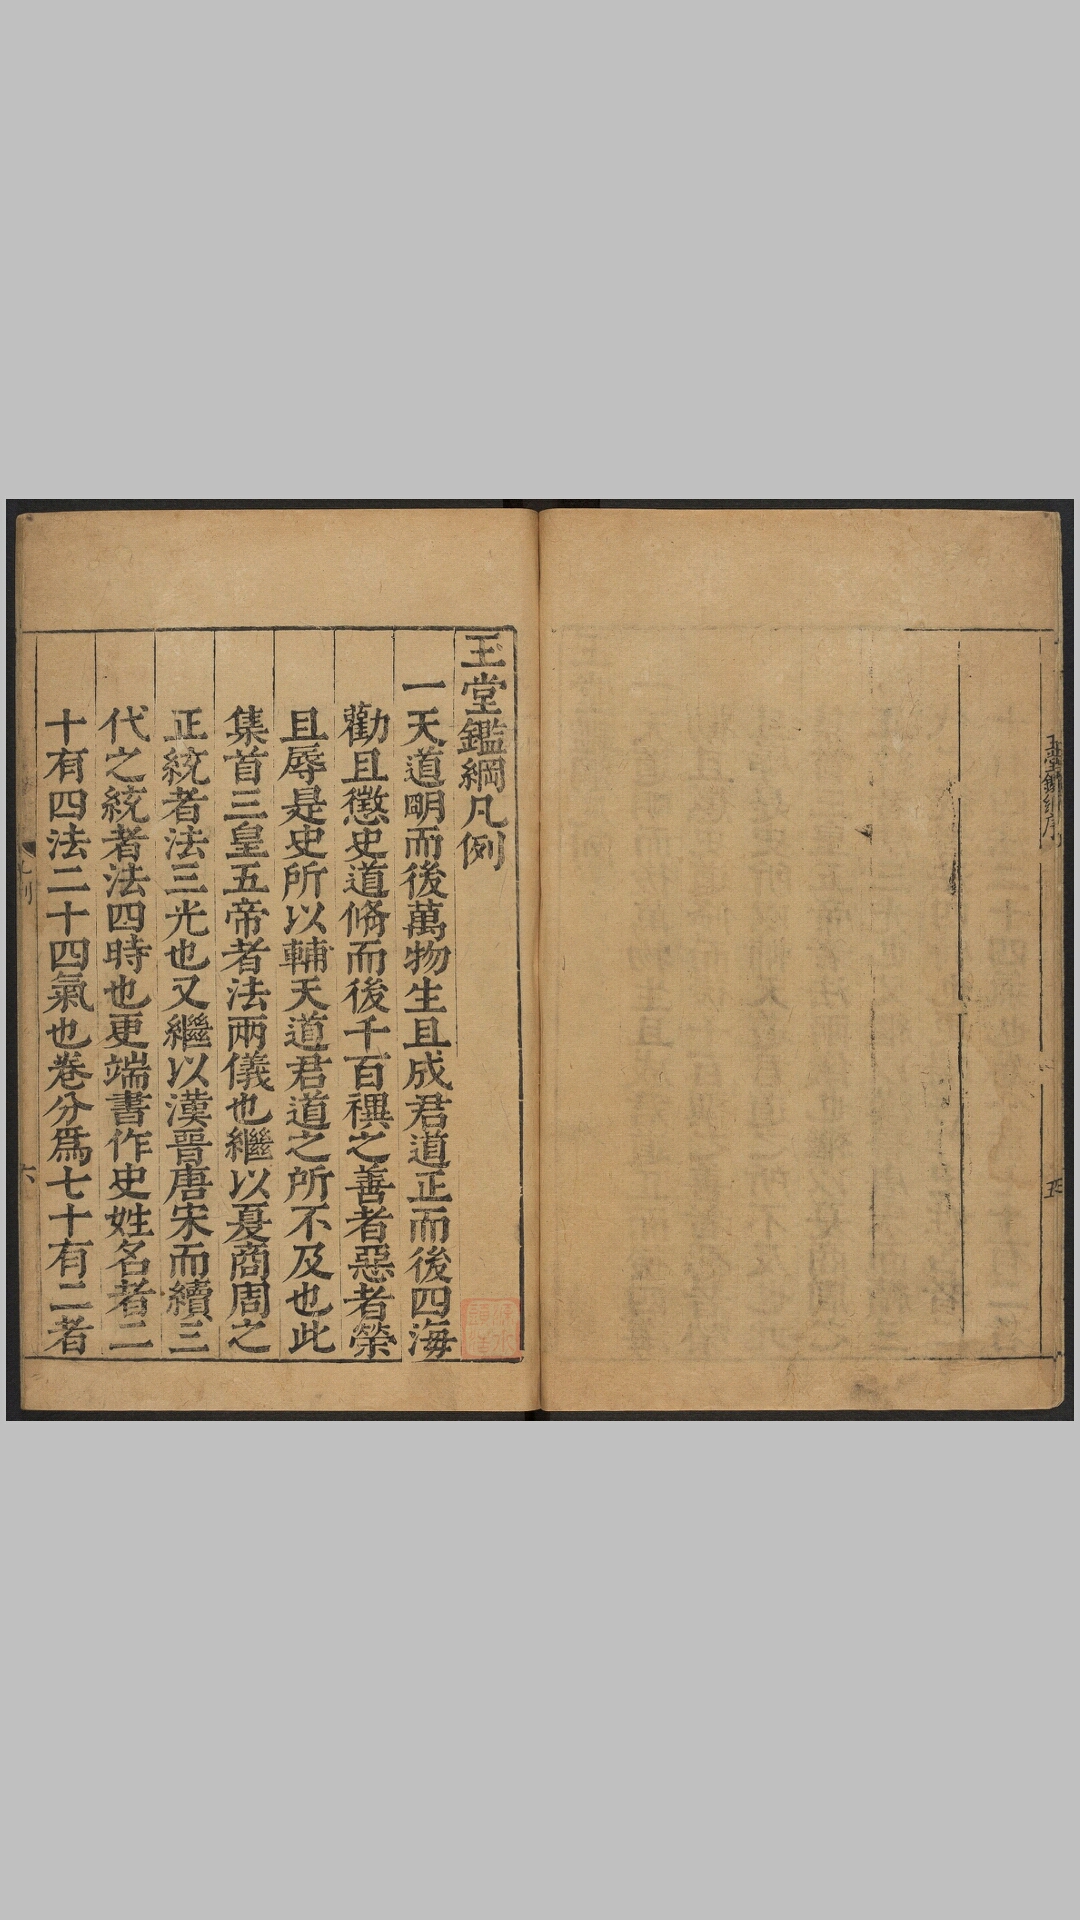 玉堂鑑綱序
五
玉堂鑑綱凡例
一天道明而後萬物生且成君道正而後四海
勸且懲史道脩而後千百禩之善者惡者榮
且辱是史所以輔天道君道之所不及也此
集首三皇五帝者法兩儀也繼以夏商周之
正統者法三光也又繼以漢晉唐宋而續三
代之統者法四時也更端書作史姓名者二
十有四法二十四氣也卷分爲七十有二者
六